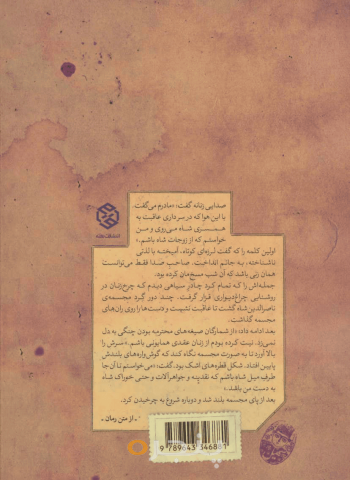 صدایی زنانه گفت: «مادرم می‌گفت
با این هوا که در سر داری عاقبت به
همسری شاه می‌روی و من
خواستم که از زوجات شاه باشم.»
اولین کلمه را که گفت لرزه‌ای کوتاه، آمیخته با لذتی
ناشناخته، به جانم انداخت. صاحب صدا فقط می‌توانست
همان زنی باشد که آن شب میهمان کرده بود.
جمله‌اش را که تمام کرد چادر سیاهی دیدم که چرخ‌زنان در
روشنایی چراغ دیواری قرار گرفت. چند دور گرد مجسمه‌ی
ناصرالدین شاه گشت تا عاقبت نشست و دست‌ها را روی ران‌های
مجسمه گذاشت.
بعد ادامه داد: «از شمارگان صیغه‌های محترمه بودن چنگی به دل
نمی‌زد. نیت کرده بودم از زنان عقدی همایونی باشم.» سرش را
بالا آورد تا به صورت مجسمه نگاه کند که گوش‌واره‌های بلندش
پایین افتاد. شکل قطره‌های اشک بود. گفت: «می‌خواستم تا آن‌جا
طرف میل شاه باشم که نقدینه و جواهرآلات و حتی خوراک شاه
به دست من باشد.»
بعد از پای مجسمه بلند شد و دوباره شروع به چرخیدن کرد.
- از متن رمان -
9 789643 346881